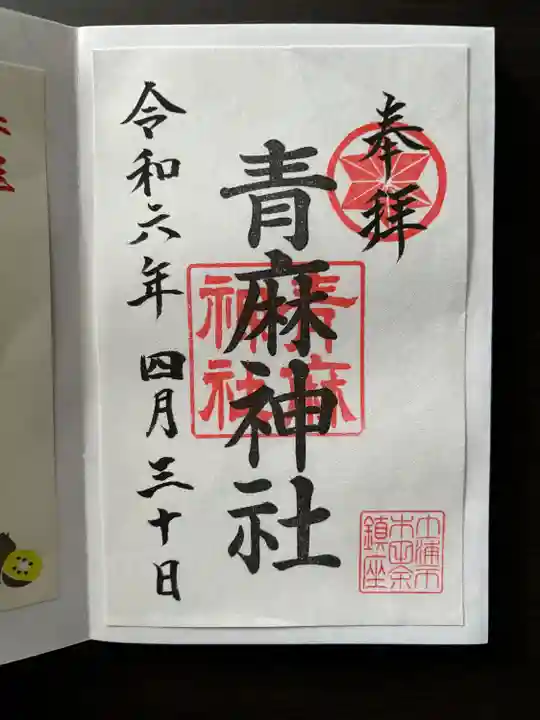 奉拝
青麻神社
青麻
神社
令和六年 四月三十日
土浦市
木田余
鎮座